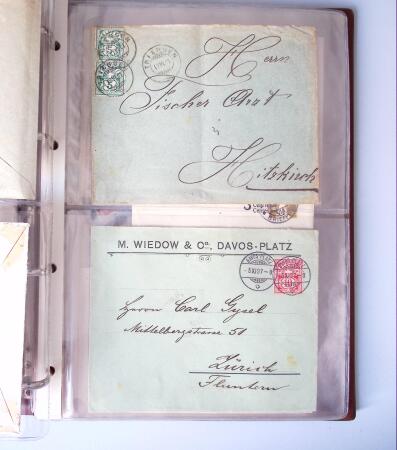 Herrn
Fischer Arzt
in
Hitzkirch
M. WIEDOW & Co., DAVOS-PLATZ
Herrn Carl Gysel
Mittelbergstrasse 51
Zürich
Fluntern